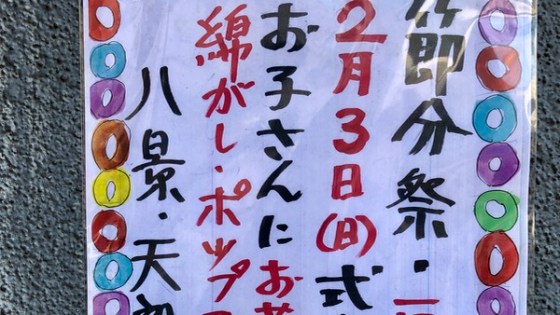 節分祭・
2月3日(日)式
お子さんにお
綿がし・ポップ
八景・天